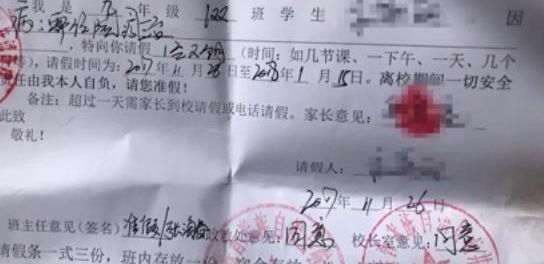 我是 九 年级 122 班学生 因
病: 需住院
，特向你请假 1个又 （时间：如几节课、一下午、一天、几个
），请假时间为: 2017年 11月 26日至2018年 1 月 15日。离校期间一切安全
责任由我本人自负，请您准假！
备注：超过一天需家长到校请假或电话请假。家长意见：
此致
敬礼！
请假人：
2017年 11 月 26 日
班主任意见（签名）准假 政教处意见：同意 校长室意见：同意
请假条一式三份，班内存放一份